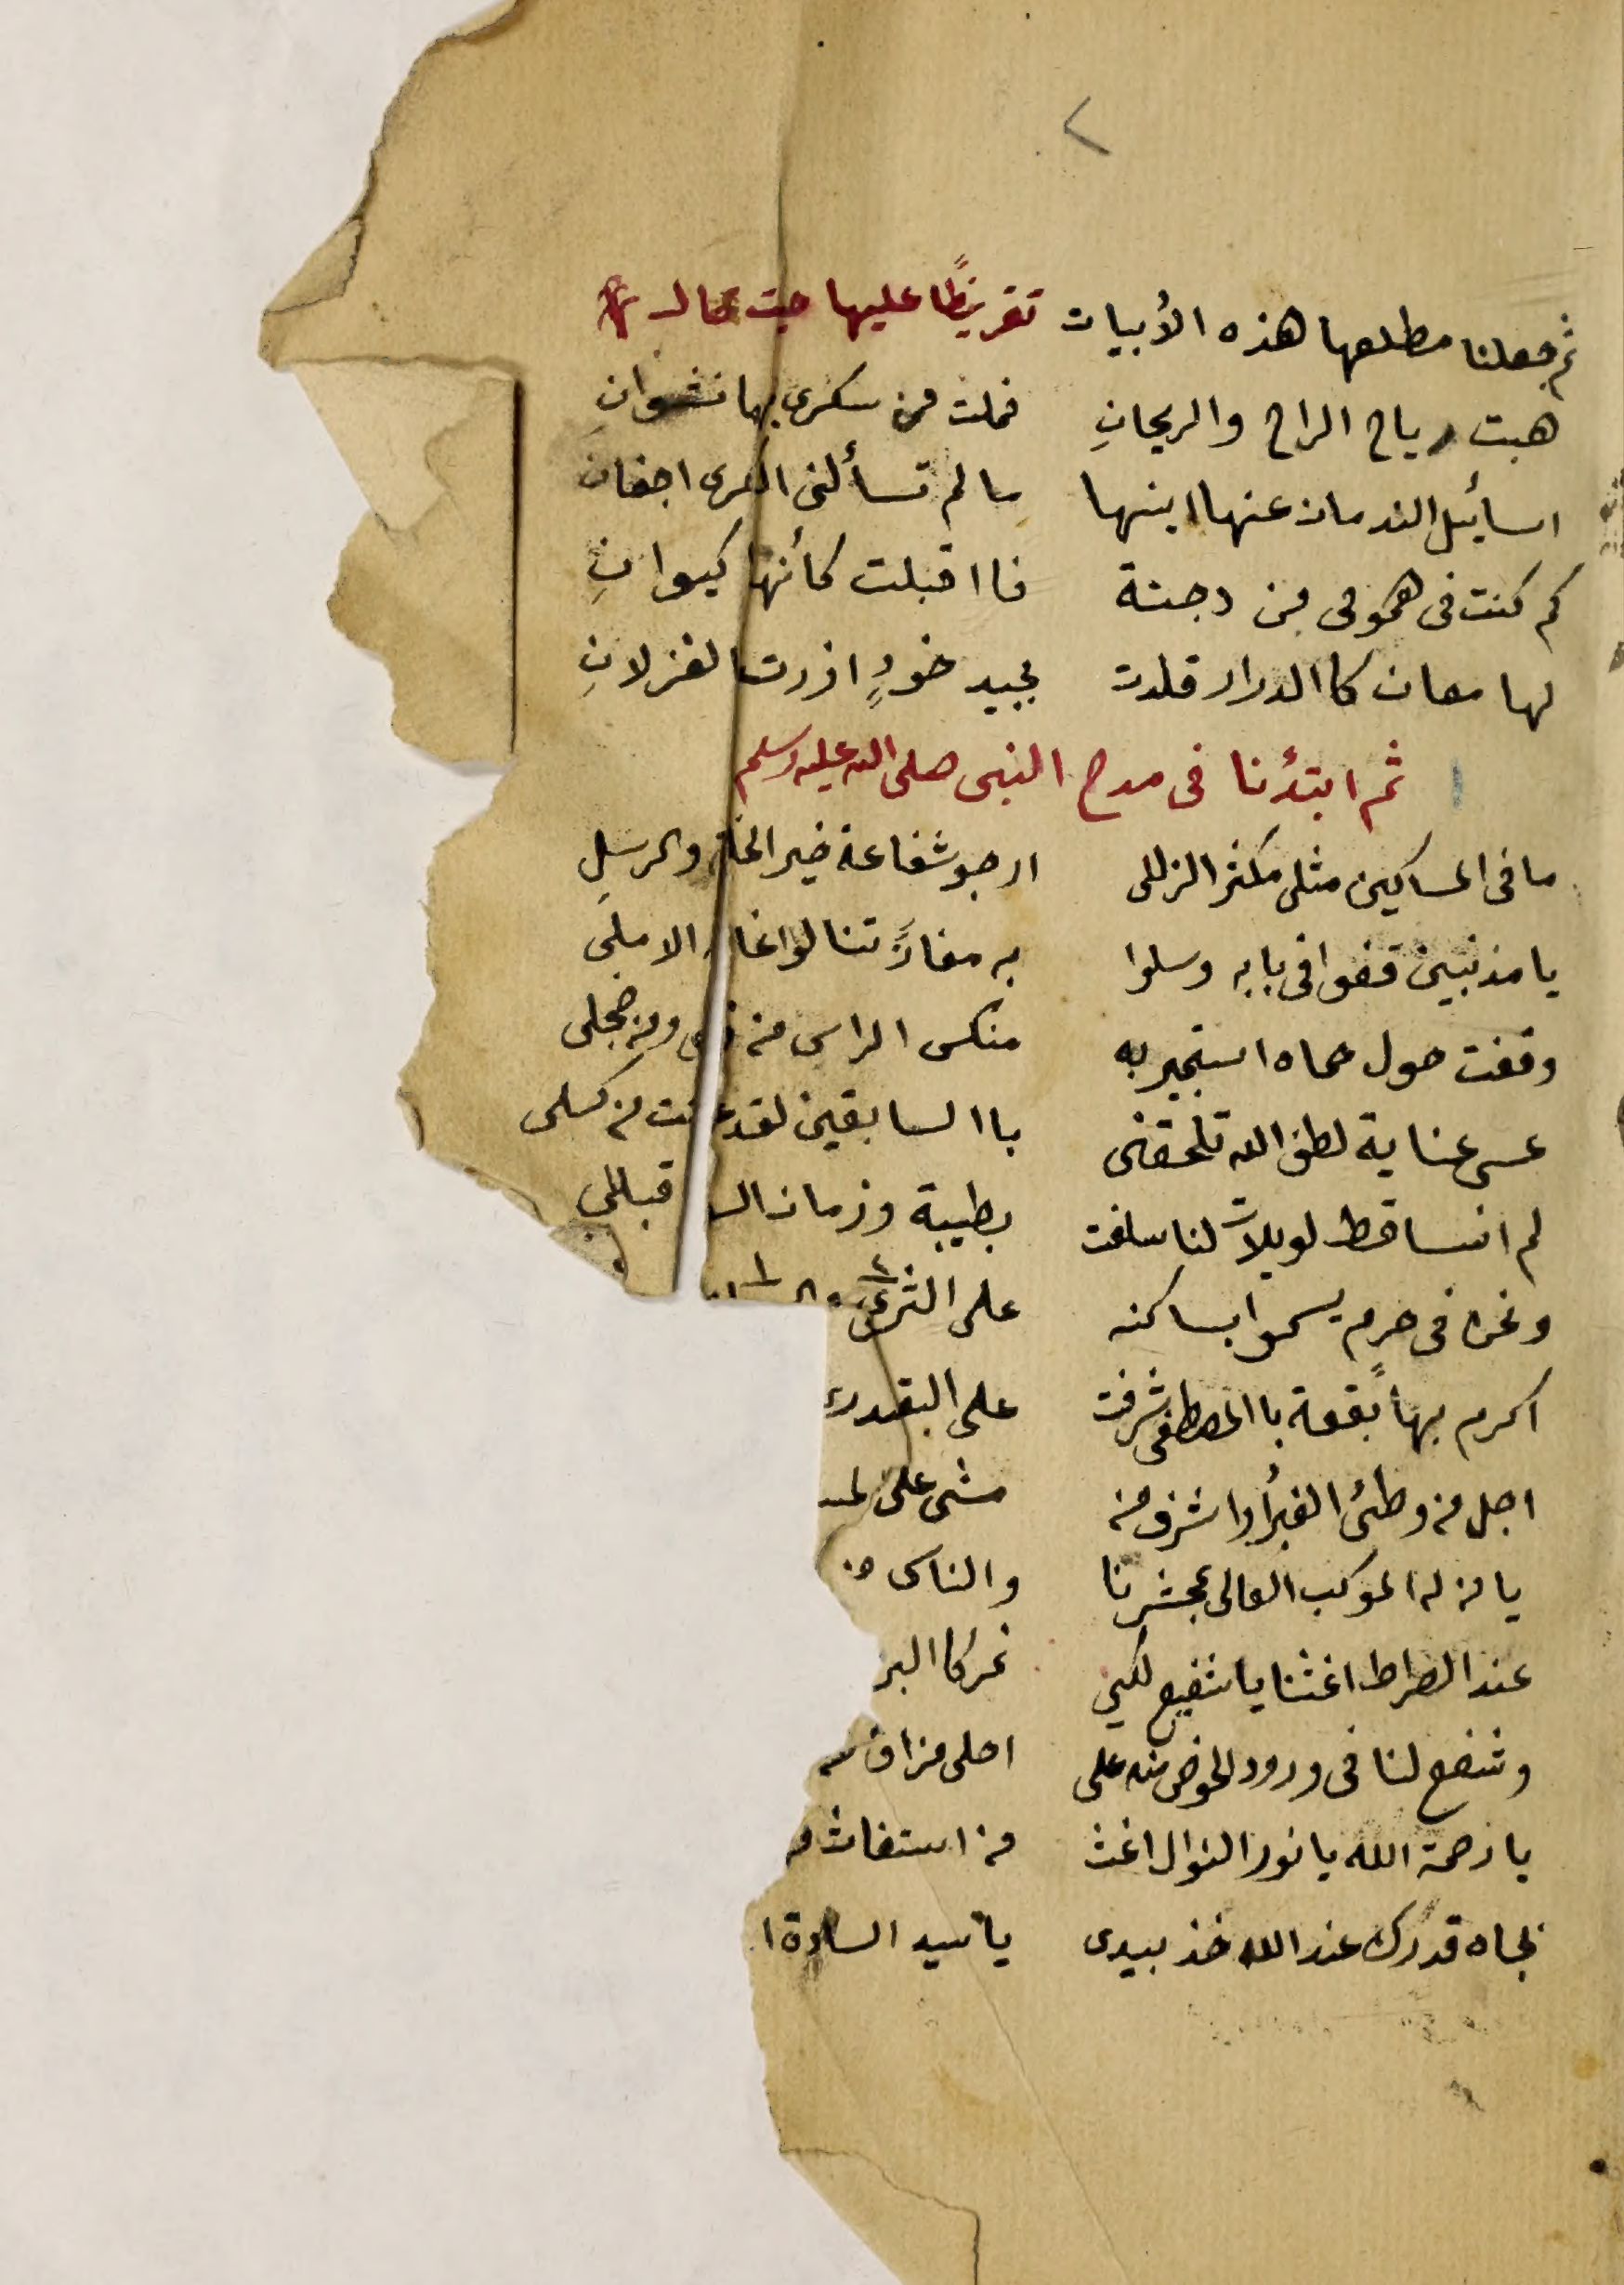 ثم جعلنا مطلعها هذه الأبيات تقريظًا عليها حيث قال
هبت رياح الراح والريحانِ فملت من سكري بها نشوانِ
اسائيل الندمان عنها اينها ما لم تسألنى الكرى اجفانِ
كم كنت فى همومى من دجنة فااقبلت كأنها كيوانِ
لها معان كاالدرار قلدت بجيد خودٍ ازرت الغزلانِ
ثم ابتدُنا فى مدح النبى صلى الله عليه وسلم
ما فى المساكين مثلى مكثر الزللى ارجو شفاعة خير الخلق والرسلِ
يا مذنبين قفوا فى بابه وسلوا به مفازً تنالوا غاية الاملى
وقفت حول حماه استجير به منكس الراس من ومن خجلى
عسى عناية لطف الله تلحقنى باالسابقين لقد من كسلى
لم انسا قط لويلات لنا سلفت بطيبة وزمان قبللى
ونحن فى حرم يسموا بساكنه على الثرى
اكرم بها بقعةً باالمصطفى شرفت على البقدرى
اجل من وطئ الغبرُا واشرف من مشى على
يا من له الموكب العالى بمحشرنا والناس
عند الصراط اغثنا يا شفيع لكى نمر كاالبر
وشفع لنا فى ورود الحوض منه على احلى مزاق
يا رحمة الله يا نور النوال اغث من استغاث
بجاه قدرك عند الله خذ بيدى يا سيد السادة